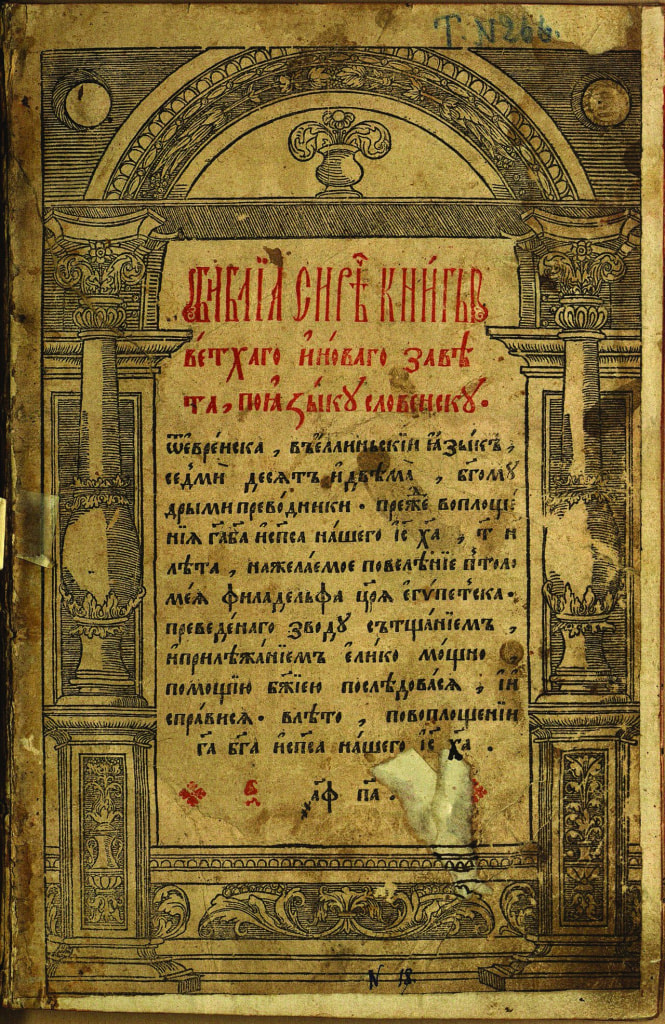 Т. N 266.
БИБЛІꙖ СИРѢ҃Ч КНИ́ГЫ
ве́тхаго и҆но́ваго завѣ́
та, поꙗ҆зы́ку слове́нску.
ѿе҆вре́йска, въе҆́ллиньскїй ꙗ҆зы́къ,
се́дмиⷨ десѧтъ и҆двѣма̀, бг҃омꙋ́
дрыми прево́дники. пре́жⷣе воплоще́
нїѧ гⷭ҇а бг҃а и҆сп҃са на́шего і҆с҃ х҃а, т҃ и
лѣ́та, нажела́емое повелѣ́нїе пⷮоло
ме́ѧ филаде́льфа цр҃ѧ е҆гѵ́петска.
преведе́наго зво́дꙋ сътща́нїемъ,
и҆прилѣжа́нїемъ е҆ли́ко мо́щно,
помощїю бж҃їею послѣ́довасѧ, и҆
спра́висѧ. влѣ́то, повоплоще́нїи
гⷭ҇а бг҃а и҆сп҃са на́шего і҆с҃ х҃а.
҂аф п҃а.
N 18.